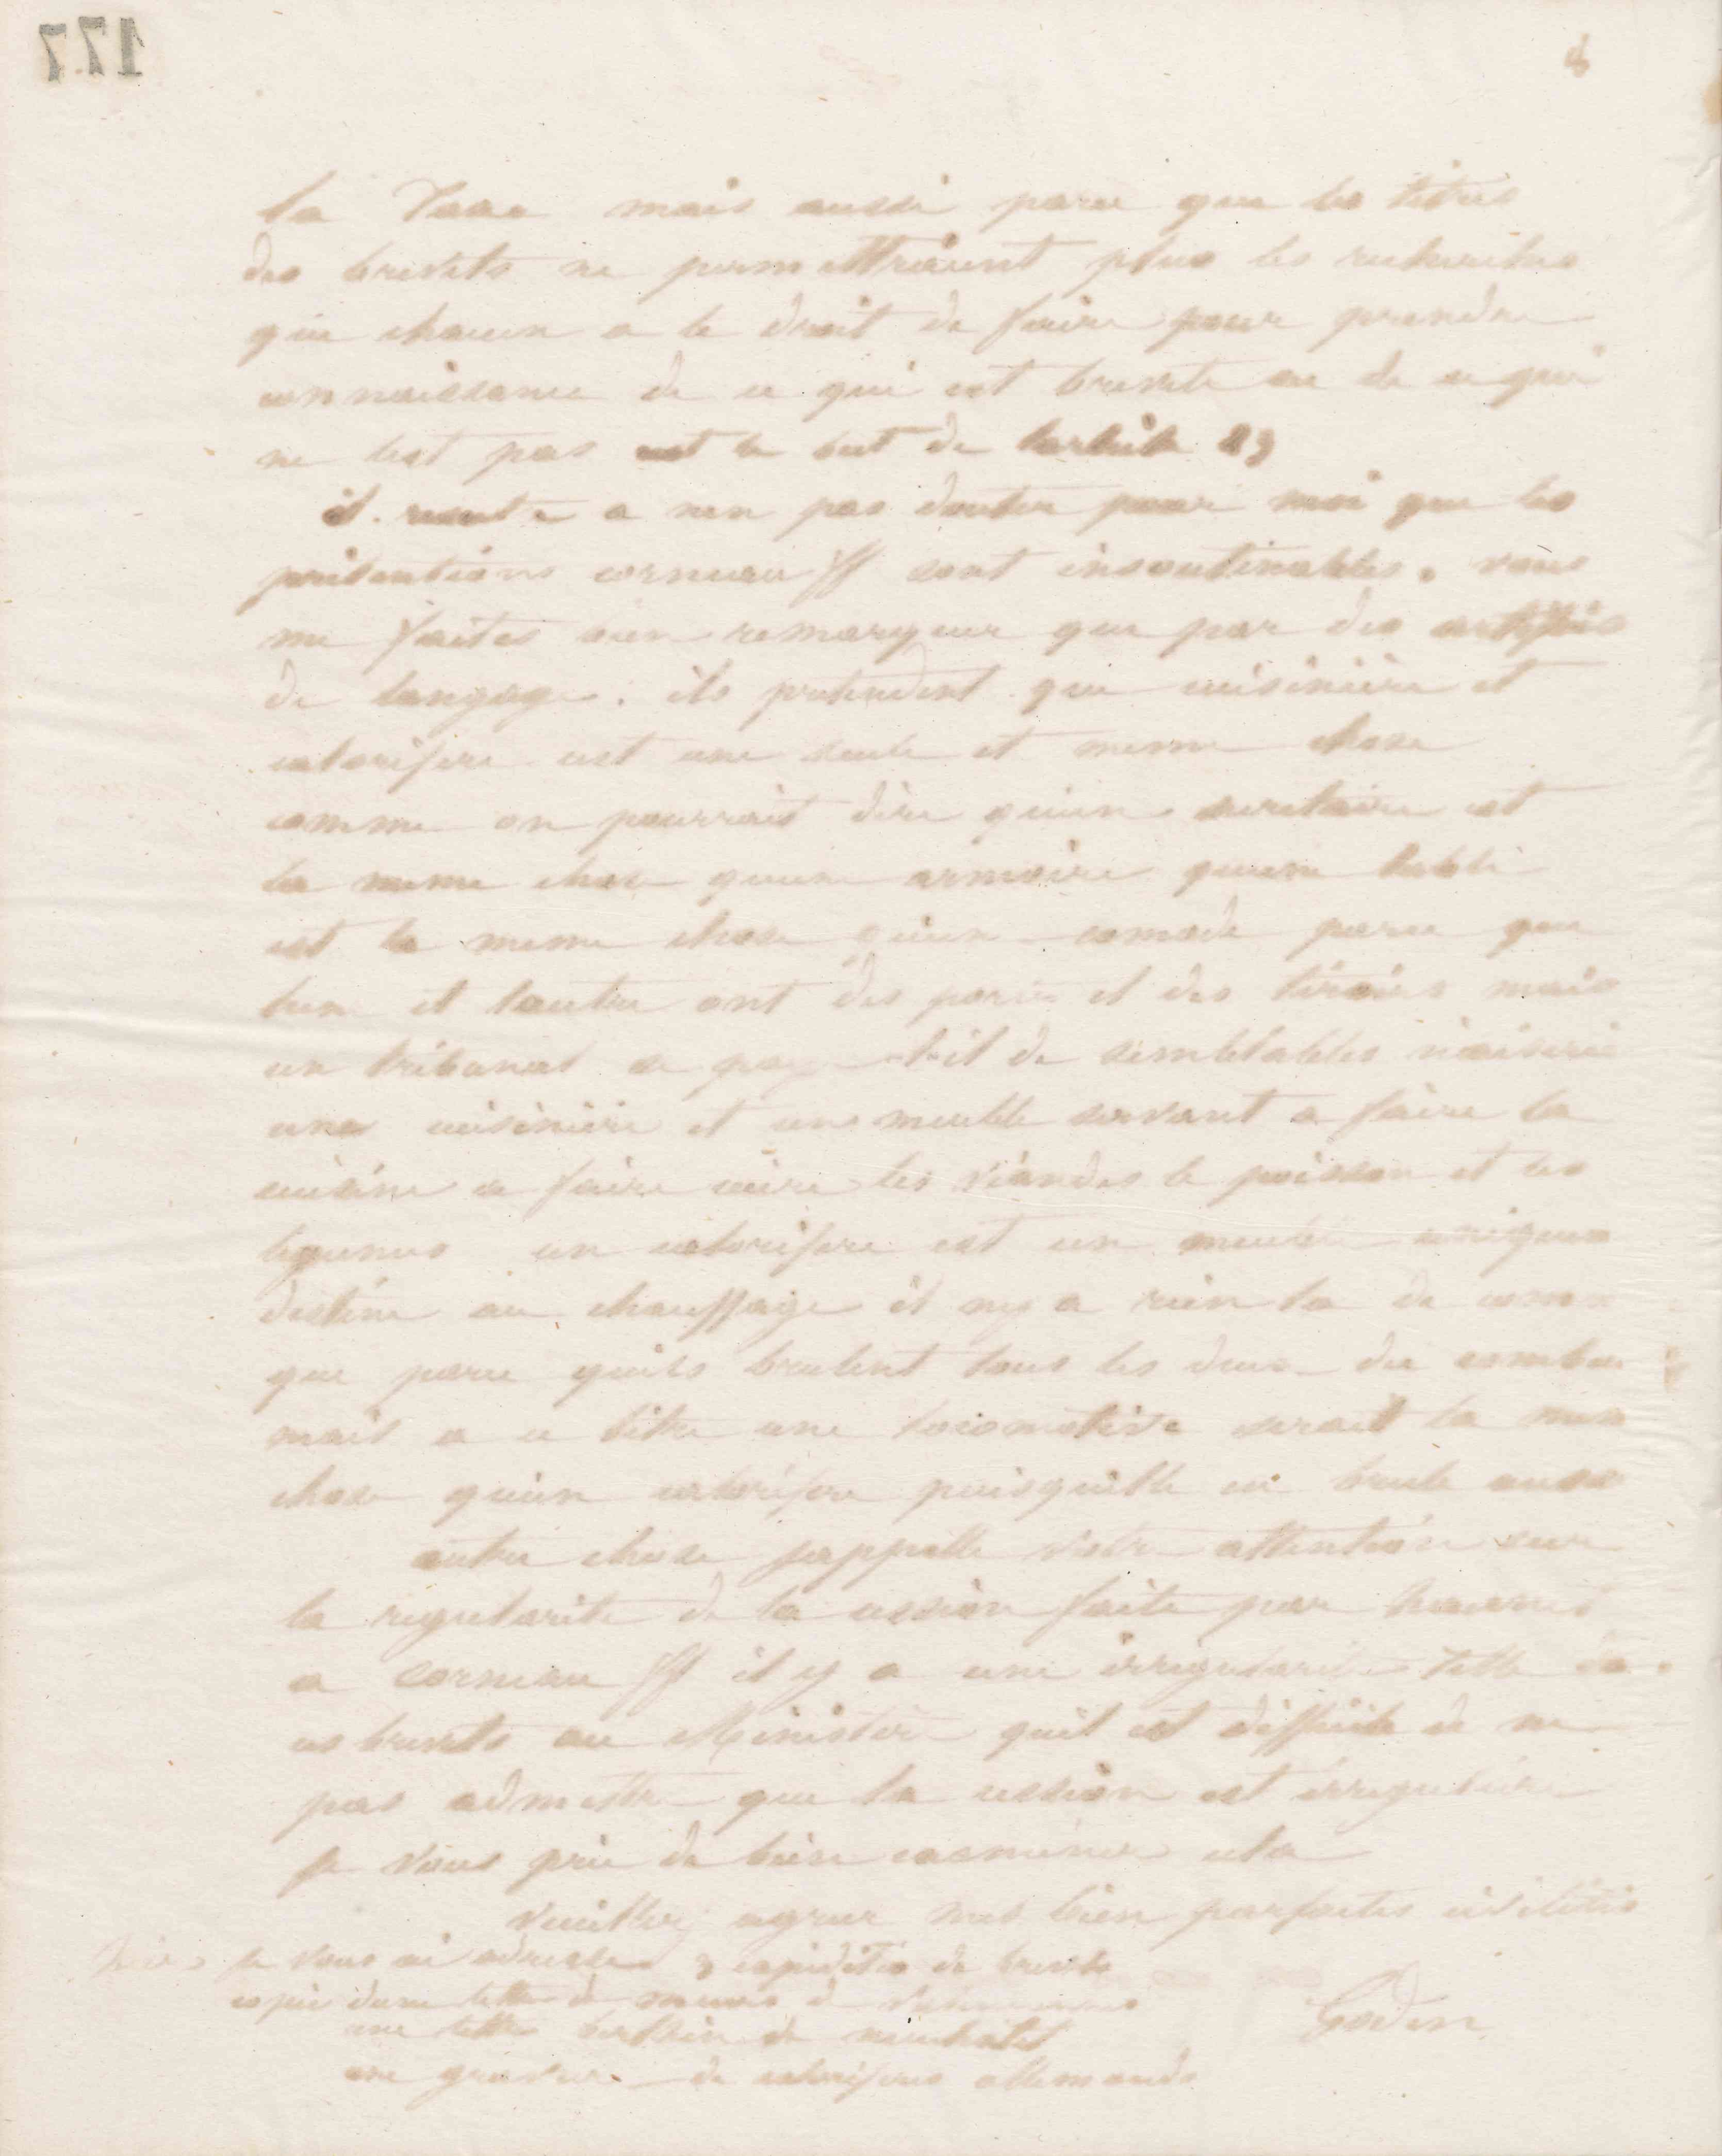 177
la Taxe mais aussi parce que les titres
des brevets ne permettraient plus les recherches
que chacun a le droit de faire pour prendre
connaissance de ce qui est breveté ou de ce qui
ne lest pas est le but de larticle 23
il reste a nen pas douter pour moi que les
prétentions corneau ff sont insoutenables. vous
me faites bien remarquer que par des artifices
de langage. ils pretendent que cuisinière et
calorifere est une seule et meme chose
comme on pourrait dire quun secretaire est
la meme chose quune armoire quune table
est la meme chose quun comode parce que
lun et lautre ont des et des tiroirs mais
un tribunal se paye t-il de semblables niaiserie
une cuisinière et une meuble servant a faire la
cuisine a faire cuire les viandes le poisson et les
legumes un calorifere est un meuble unique
destine au chauffage il ny a rien la de comm
que parce quils brulent tous les deux du combus
mais a ce titre une locomotive serait la mem
chose quun calorifere puisquelle en brule aussi
autre chose jappelle votre attention sur
la regularite de la cession faite par
a corneau ff il y a une irregularite telle da
ces brevets au Ministere quil est difficile de ne
pas admettre que la cession est irreguliere
je vous prie de bien examiner cela
veuillez agreer mes bien parfaites civilités
je vous ai adresse 3 expedition de brevets
copie dune lettre de de
une lettre de neuchatel
une gravure de caloriferes allemands
Godin